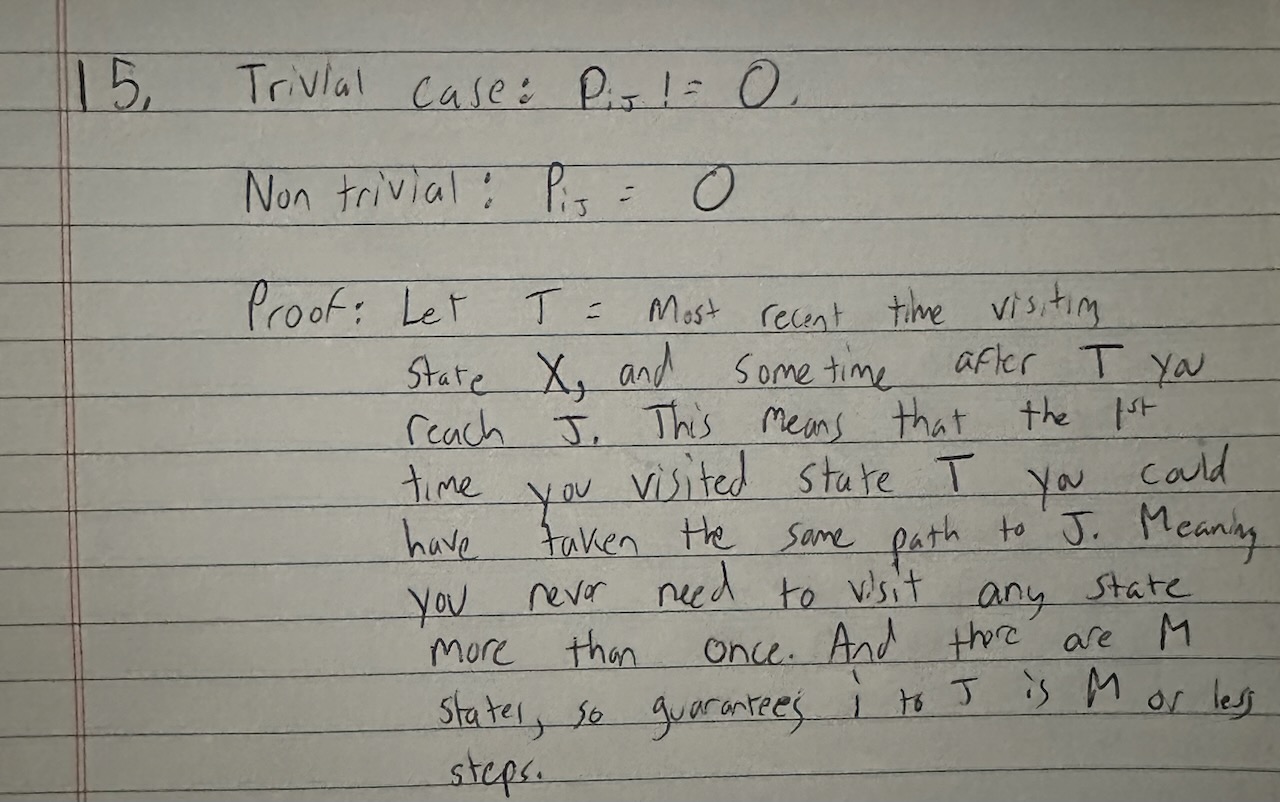 15. Trivial case: PiJ != 0.
Non trivial: PiJ = 0
Proof: Let T = Most recent time visiting
state X, and some time after T you
reach J. This means that the 1st
time you visited state T you could
have taken the same path to J. Meaning
you never need to visit any state
more than once. And there are M
states, so guarantees i to J is M or less
steps.